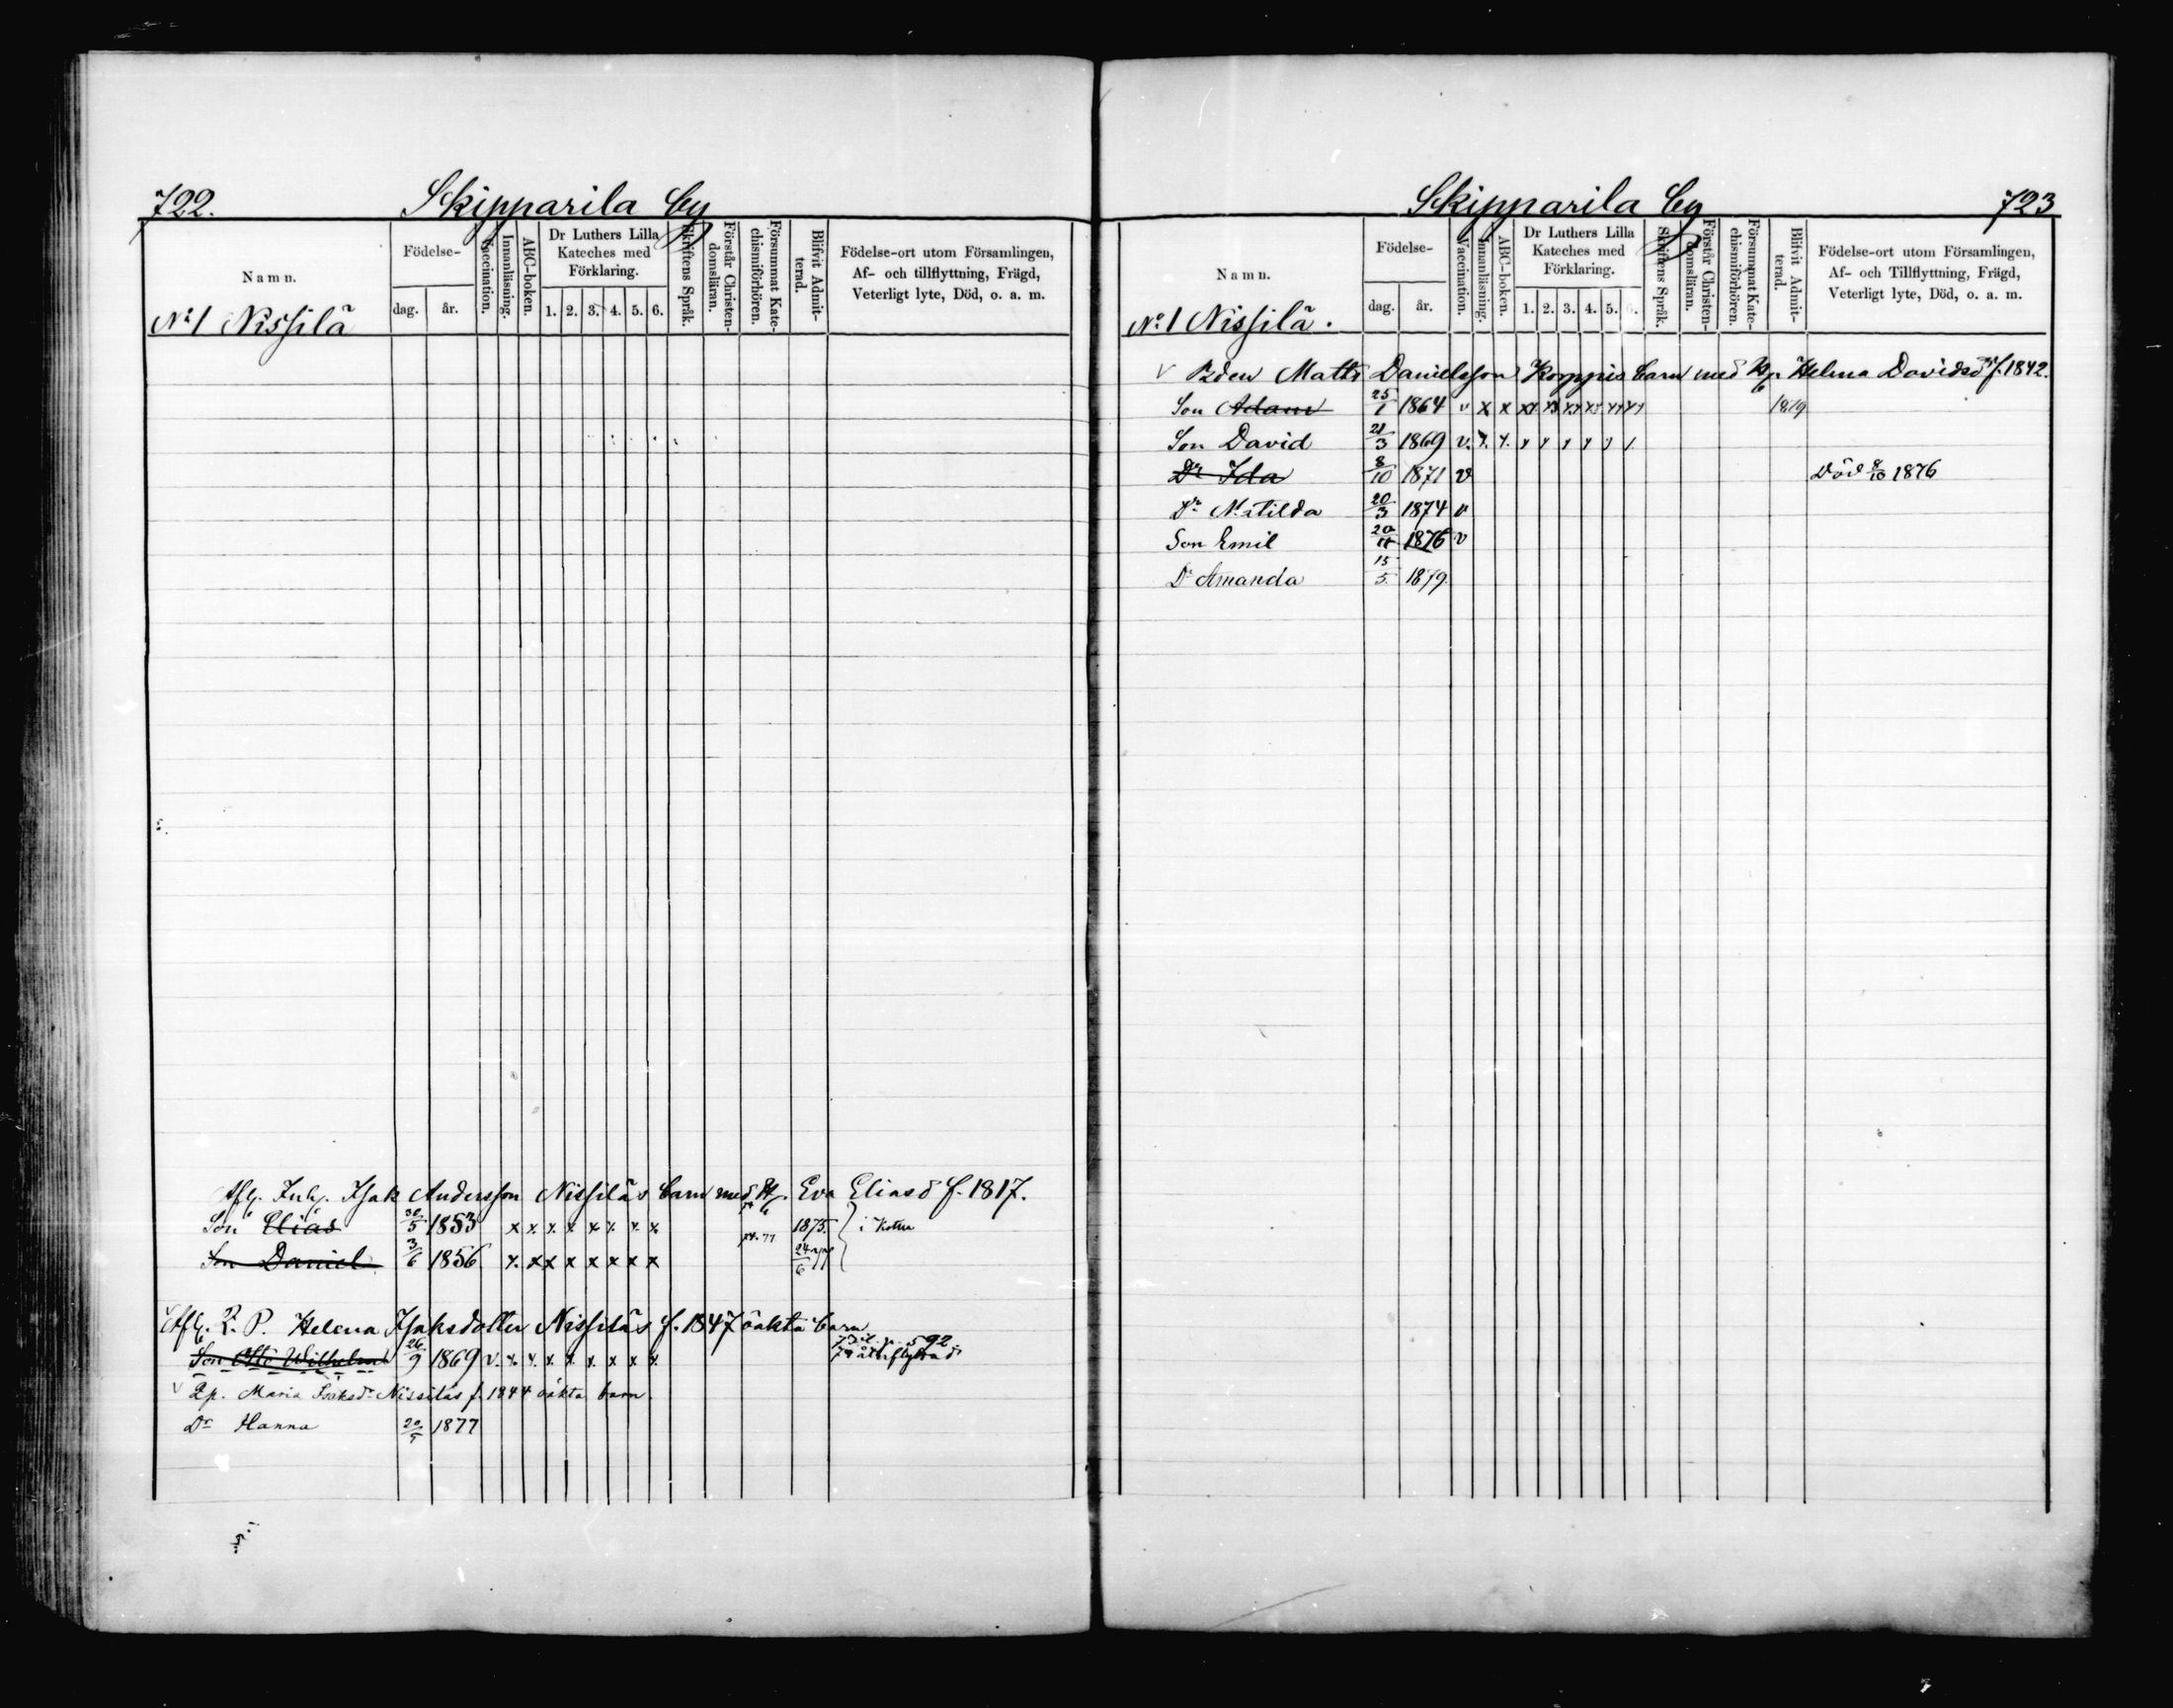 722. Skipparila by
Namn. Födelse- dag. år. Vaccination. Innanläsning. ABC-boken. Dr Luthers Lilla Kateches med Förklaring. 1. 2. 3. 4. 5. 6. Skriftens Språk. Förstår Christen-domsläran. Försummat Kate-chismiförhören. Blifvit Admit-terad. Födelse-ort utom Församlingen, Af- och tillflyttning, Frägd, Veterligt lyte, Död, o. a. m.
No 1 Nissilä
Afl. Inh. Isak Anderssson Nissiläs barn med H. Eva Eliasd f. 1817.
Son Elias 30/5 1853 x x x x x x x x 1875. i Kotka
Son Daniel 3/6 1856 x x x x x x x x 24/6
Afl. P. Helena Isaksdotter Nissiläs f. 1847 oäkta barn
Son Otto Wilhelm 26/9 1869 v. x x x x x x x x 592
Maria Isaksdr Nissiläs f. 1844 oäkta barn.
Dr Hanna 20/5 1877
Skipparila by 723
Namn. Födelse- dag. år. Vaccination. Innanläsning. ABC-boken. Dr Luthers Lilla Kateches med Förklaring. 1. 2. 3. 4. 5. 6. Skriftens Språk. Förstår Christen-domsläran. Försummat Kate-chismiförhören. Blifvit Admit-terad. Födelse-ort utom Församlingen, Af- och Tillflyttning, Frägd, Veterligt lyte, Död, o. a. m.
No 1 Nissilä.
v Bden Matts Danielsson Korppis barn med H. Helena Davidsd f. 1842.
Son Adam 25/1 1864 v x x x x x x x x 1879
Son David 21/3 1869 v. x. x. x x x x x x
Dr Ida 8/10 1871 v Död 8/10 1876
Dr Matilda 20/3 1874 v
Son Emil 20/11 1876 v
Dr Amanda 15/5 1879.